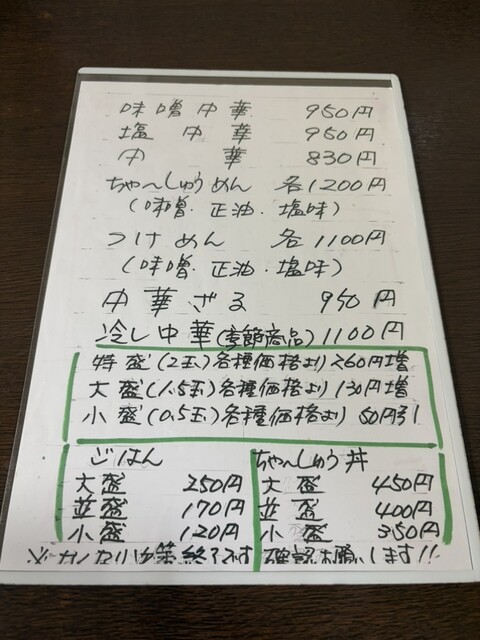 味噌中華 950円
塩中華 950円
中華 830円
ちゃーしゅうめん 各1200円
(味噌・正油・塩味)
つけめん 各1100円
(味噌・正油・塩味)
中華ざる 950円
冷し中華(季節商品)1100円
特盛(2玉)各種価格より260円増
大盛(1.5玉)各種価格より130円増
小盛(0.5玉)各種価格より50円引
ごはん
大盛 250円
並盛 170円
小盛 120円
ちゃーしゅう丼
大盛 450円
並盛 400円
小盛 350円
終了です 確認お願いします!!